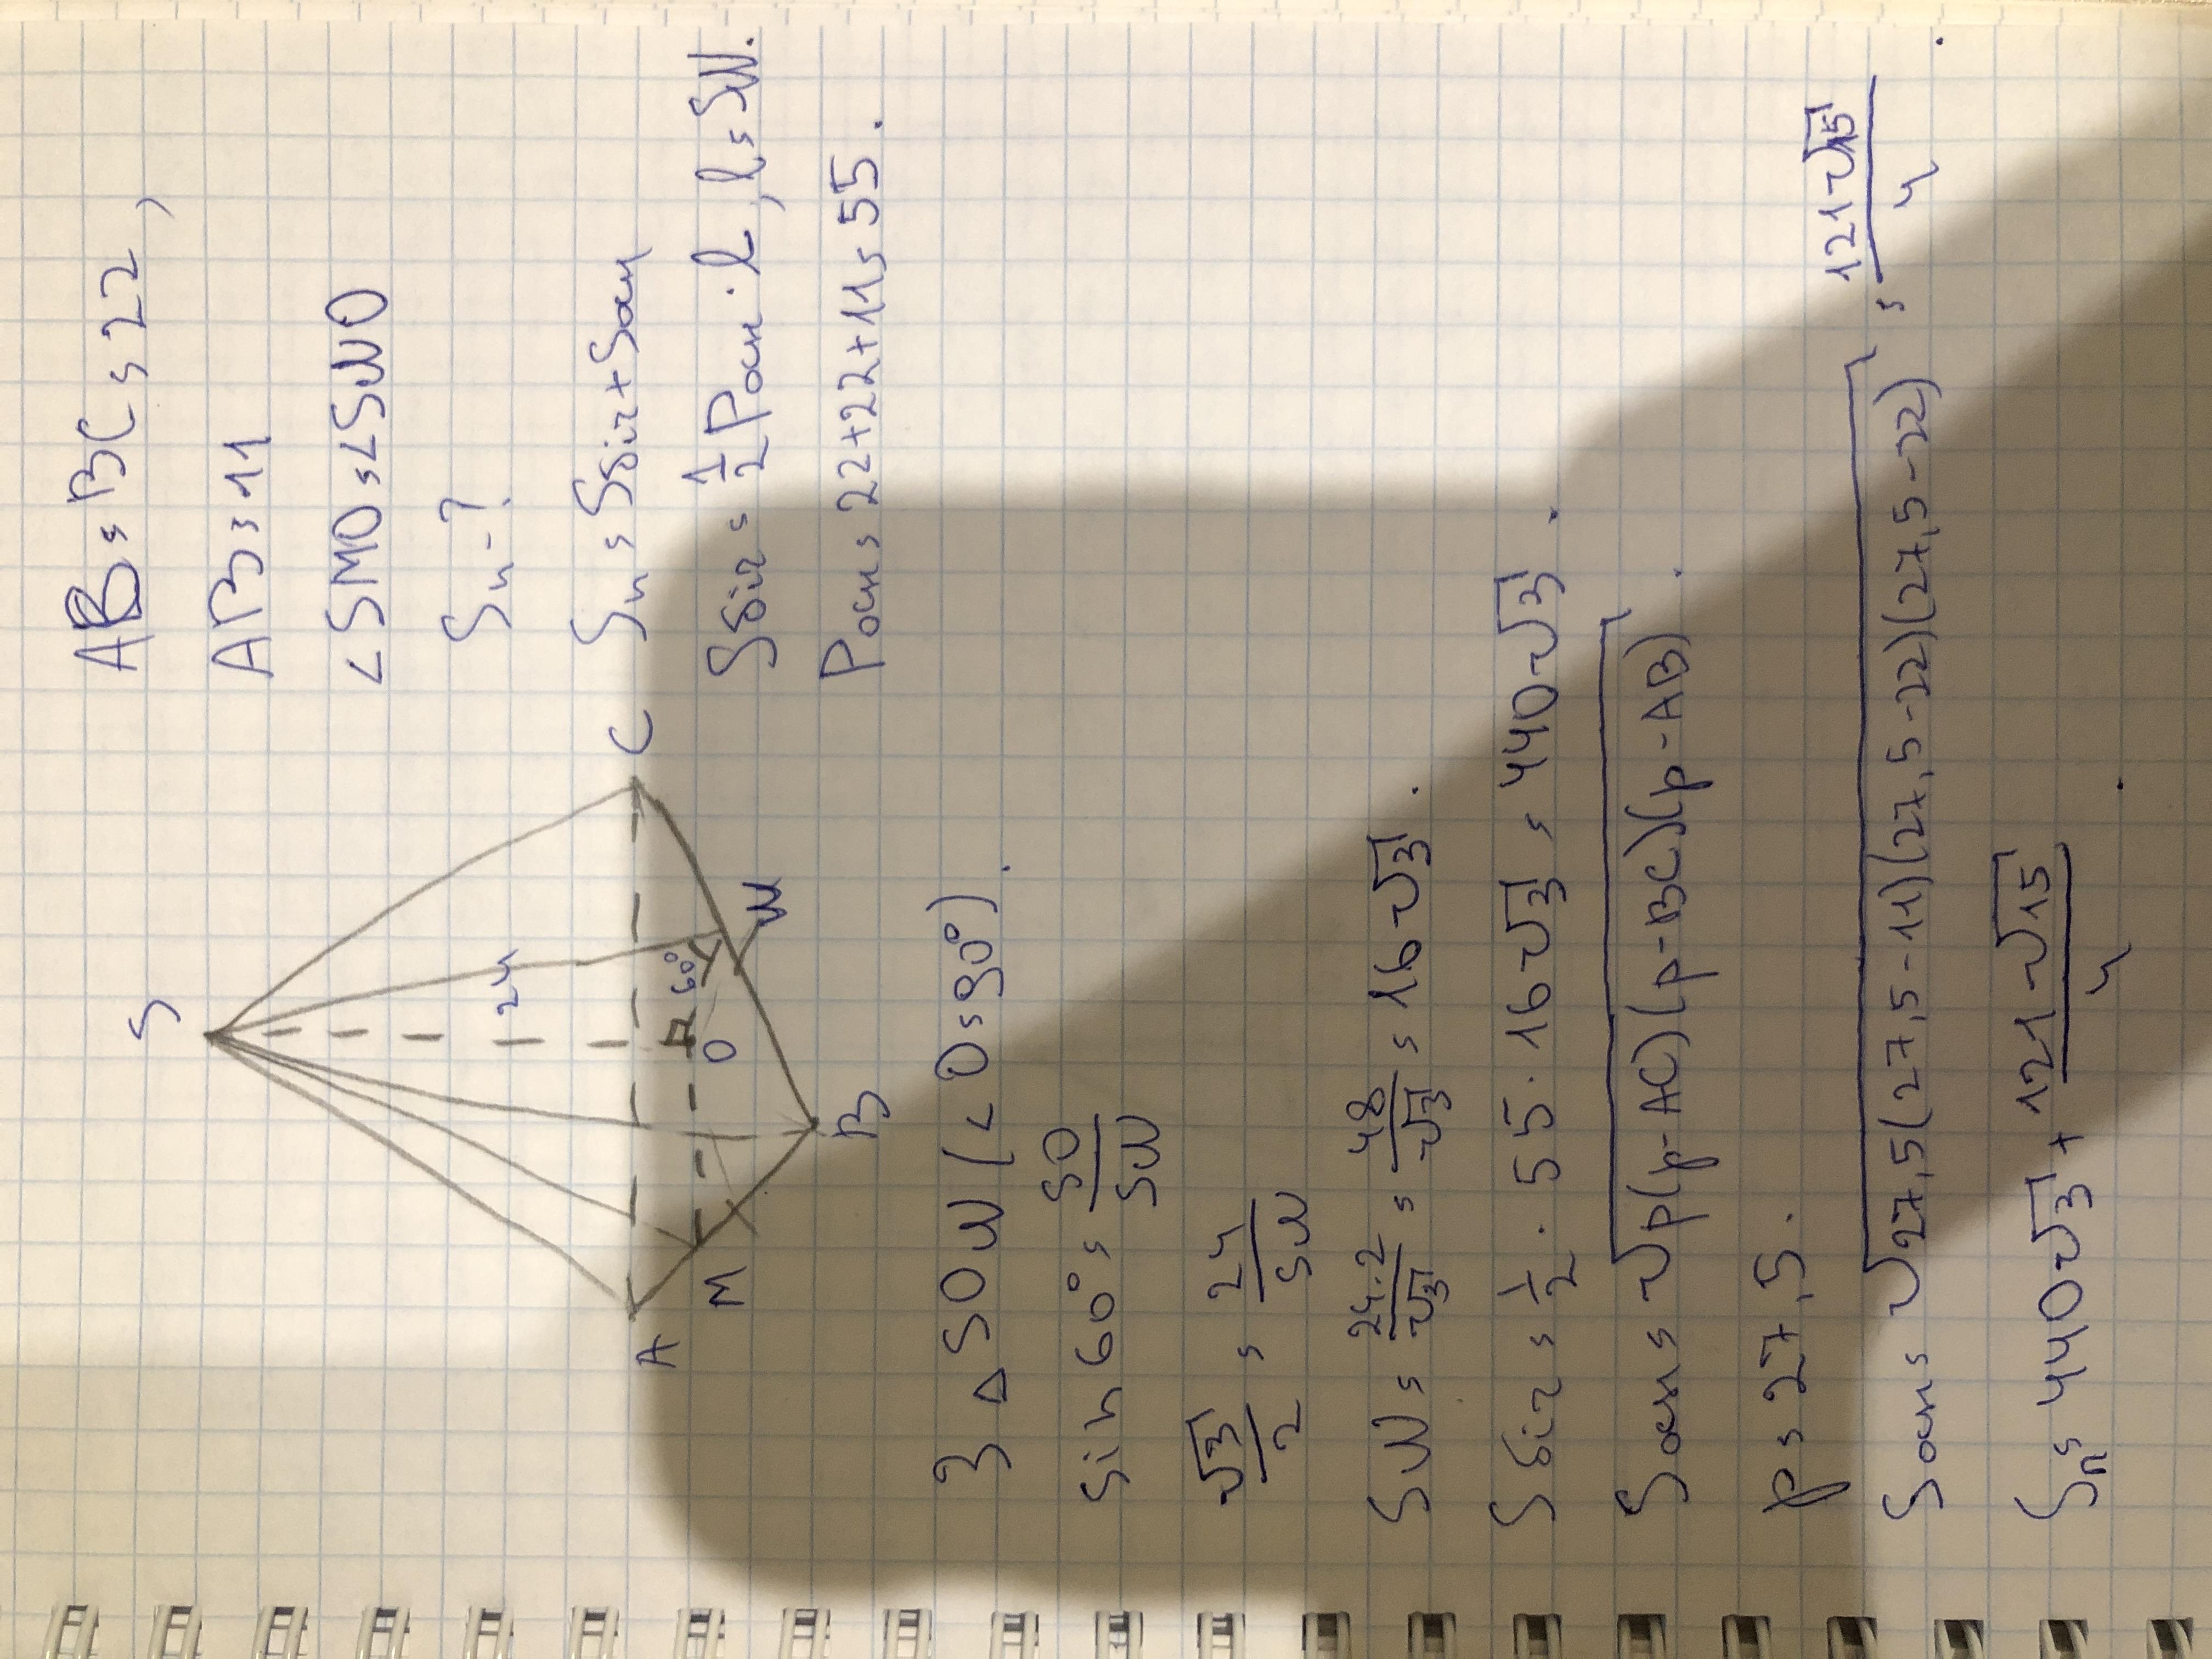 S
24
60°
O
A
M
B
N
C
AB = BC = 22,
AB = 11
∠SMO = ∠SNO
Sп - ?
Sп = Sбіч + Sосн
Sбіч = 1/2 Pосн · l, l = SN.
Pосн = 22+22+11 = 55.
З △SON (∠O = 90°).
sin 60° = SO/SN
√3/2 = 24/SN
SN = 24·2/√3 = 48/√3 = 16√3.
Sбіч = 1/2 · 55 · 16√3 = 440√3.
Sосн = √p(p-AC)(p-BC)(p-AB).
p = 27,5.
Sосн = √27,5(27,5-11)(27,5-22)(27,5-22) = 121√15/4.
Sп = 440√3 + 121√15/4.